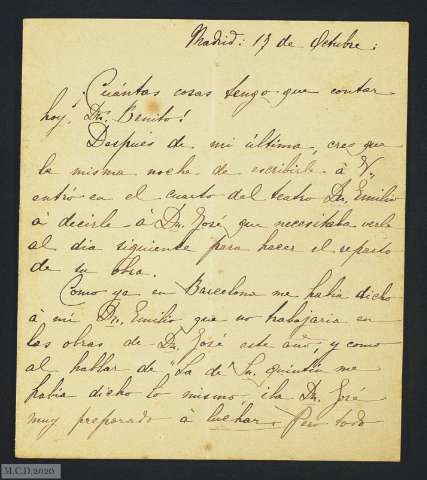 Madrid: 13 de Octubre:
¡Cuántas cosas tengo que contar
hoy, Dn. Benito!
Después de mi última, creo que
la misma noche de escribirle á V.,
entró en el cuarto del teatro Dn. Emilio
á decirle á Dn. José, que necesitaba verle
al dia siguiente para hacer el reparto
de su obra.
Como ya en Barcelona me habia dicho
á mi Dn. Emilio, que no trabajaria en
las obras de Dn. José este año; y como
al hablar de "La de Sn. Quintin" me
habia dicho lo mismo, iba Dn. José
muy preparado á luchar. Pero todo
M.C.D. 2020